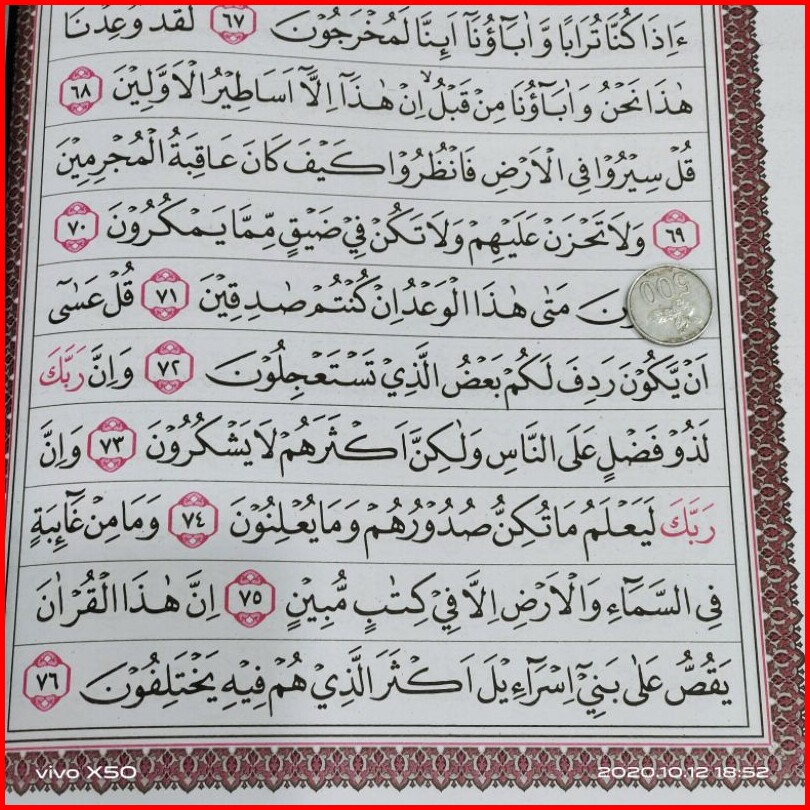 ءَاِذَا كُنَّا تُرَابًا وَّاٰبَاۤؤُنَآ اَىِٕنَّا لَمُخْرَجُوْنَ ٦٧ لَقَدْ وُعِدْنَا
هٰذَا نَحْنُ وَاٰبَاۤؤُنَا مِنْ قَبْلُۙ اِنْ هٰذَآ اِلَّآ اَسَاطِيْرُ الْاَوَّلِيْنَ ٦٨
قُلْ سِيْرُوْا فِى الْاَرْضِ فَانْظُرُوْا كَيْفَ كَانَ عَاقِبَةُ الْمُجْرِمِيْنَ
٦٩ وَلَا تَحْزَنْ عَلَيْهِمْ وَلَا تَكُنْ فِيْ ضَيْقٍ مِّمَّا يَمْكُرُوْنَ ٧٠
مَتٰى هٰذَا الْوَعْدُ اِنْ كُنْتُمْ صٰدِقِيْنَ ٧١ قُلْ عَسٰٓى
اَنْ يَّكُوْنَ رَدِفَ لَكُمْ بَعْضُ الَّذِيْ تَسْتَعْجِلُوْنَ ٧٢ وَاِنَّ رَبَّكَ
لَذُوْ فَضْلٍ عَلَى النَّاسِ وَلٰكِنَّ اَكْثَرَهُمْ لَا يَشْكُرُوْنَ ٧٣ وَاِنَّ
رَبَّكَ لَيَعْلَمُ مَا تُكِنُّ صُدُوْرُهُمْ وَمَا يُعْلِنُوْنَ ٧٤ وَمَا مِنْ غَاۤىِٕبَةٍ
فِى السَّمَاۤءِ وَالْاَرْضِ اِلَّا فِيْ كِتٰبٍ مُّبِيْنٍ ٧٥ اِنَّ هٰذَا الْقُرْاٰنَ
يَقُصُّ عَلٰى بَنِيْٓ اِسْرَاۤءِيْلَ اَكْثَرَ الَّذِيْ هُمْ فِيْهِ يَخْتَلِفُوْنَ ٧٦
500
vivo X50
2020.10.12 18:52